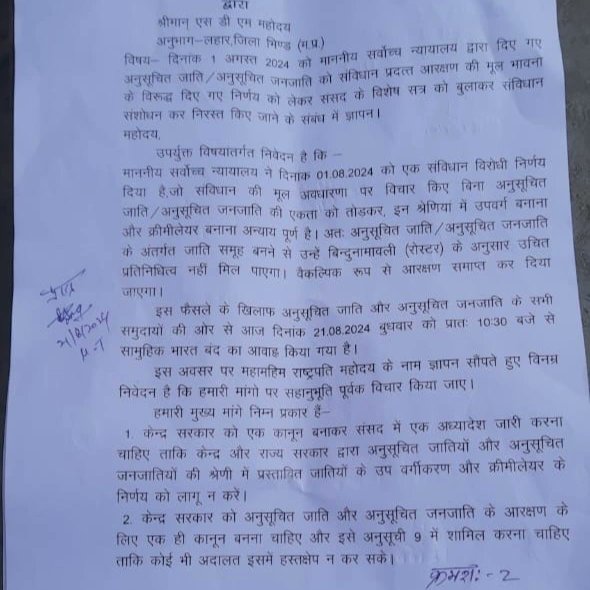 द्वारा
श्रीमान् एस डी एम महोदय
अनुभाग–लहार,जिला भिण्ड (म.प्र.)
विषय– दिनांक 1 अगस्त 2024 को माननीय सर्वोच्च न्यायालय द्वारा दिए गए
अनुसूचित जाति/अनुसूचित जनजाति को संविधान प्रदत्त आरक्षण की मूल भावना
के विरूद्ध दिए गए निर्णय को लेकर संसद के विशेष सत्र को बुलाकर संविधान
संशोधन कर निरस्त किए जाने के संबंध में ज्ञापन।
महोदय,
उपर्युक्त विषयातर्गत निवेदन है कि –
माननीय सर्वोच्च न्यायालय ने दिनाक 01.08.2024 को एक संविधान विरोधी निर्णय
दिया है,जो संविधान की मूल अवधारणा पर विचार किए बिना अनुसूचित
जाति/अनुसूचित जनजाति की एकता को तोड़कर, इन श्रेणिया में उपवर्ग बनाना
और क्रीमीलेयर बनाना अन्याय पूर्ण है। अतः अनुसूचित जाति/अनुसूचित जनजाति
के अंतर्गत जाति समूह बनने से उन्हें बिन्दुनामावली (रोस्टर) के अनुसार उचित
प्रतिनिधित्व नहीं मिल पाएगा। वैकल्पिक रूप से आरक्षण समाप्त कर दिया
जाएगा।
इस फैसले के खिलाफ अनुसूचित जाति और अनुसूचित जनजाति के सभी
समुदायों की ओर से आज दिनांक 21.08.2024 बुधवार को प्रातः 10:30 बजे से
सामुहिक भारत बंद का आवाह्न किया गया है।
इस अवसर पर महामहिम राष्ट्रपति महोदय के नाम ज्ञापन सौपते हुए विनम्र
निवेदन है कि हमारी मांगो पर सहानुभूति पूर्वक विचार किया जाए।
हमारी मुख्य मांगे निम्न प्रकार हैं–
1. केन्द्र सरकार को एक कानून बनाकर संसद में एक अध्यादेश जारी करना
चाहिए ताकि केन्द्र और राज्य सरकार द्वारा अनुसूचित जातियों और अनुसूचित
जनजातियों की श्रेणी में प्रस्तावित जातियों के उप वर्गीकरण और क्रीमीलेयर के
निर्णय को लागू न करें।
2. केन्द्र सरकार को अनुसूचित जाति और अनुसूचित जनजाति के आरक्षण के
लिए एक ही कानून बनना चाहिए और इसे अनुसूची 9 में शामिल करना चाहिए
ताकि कोई भी अदालत इसमें हस्तक्षेप न कर सके।
क्रमशः - 2